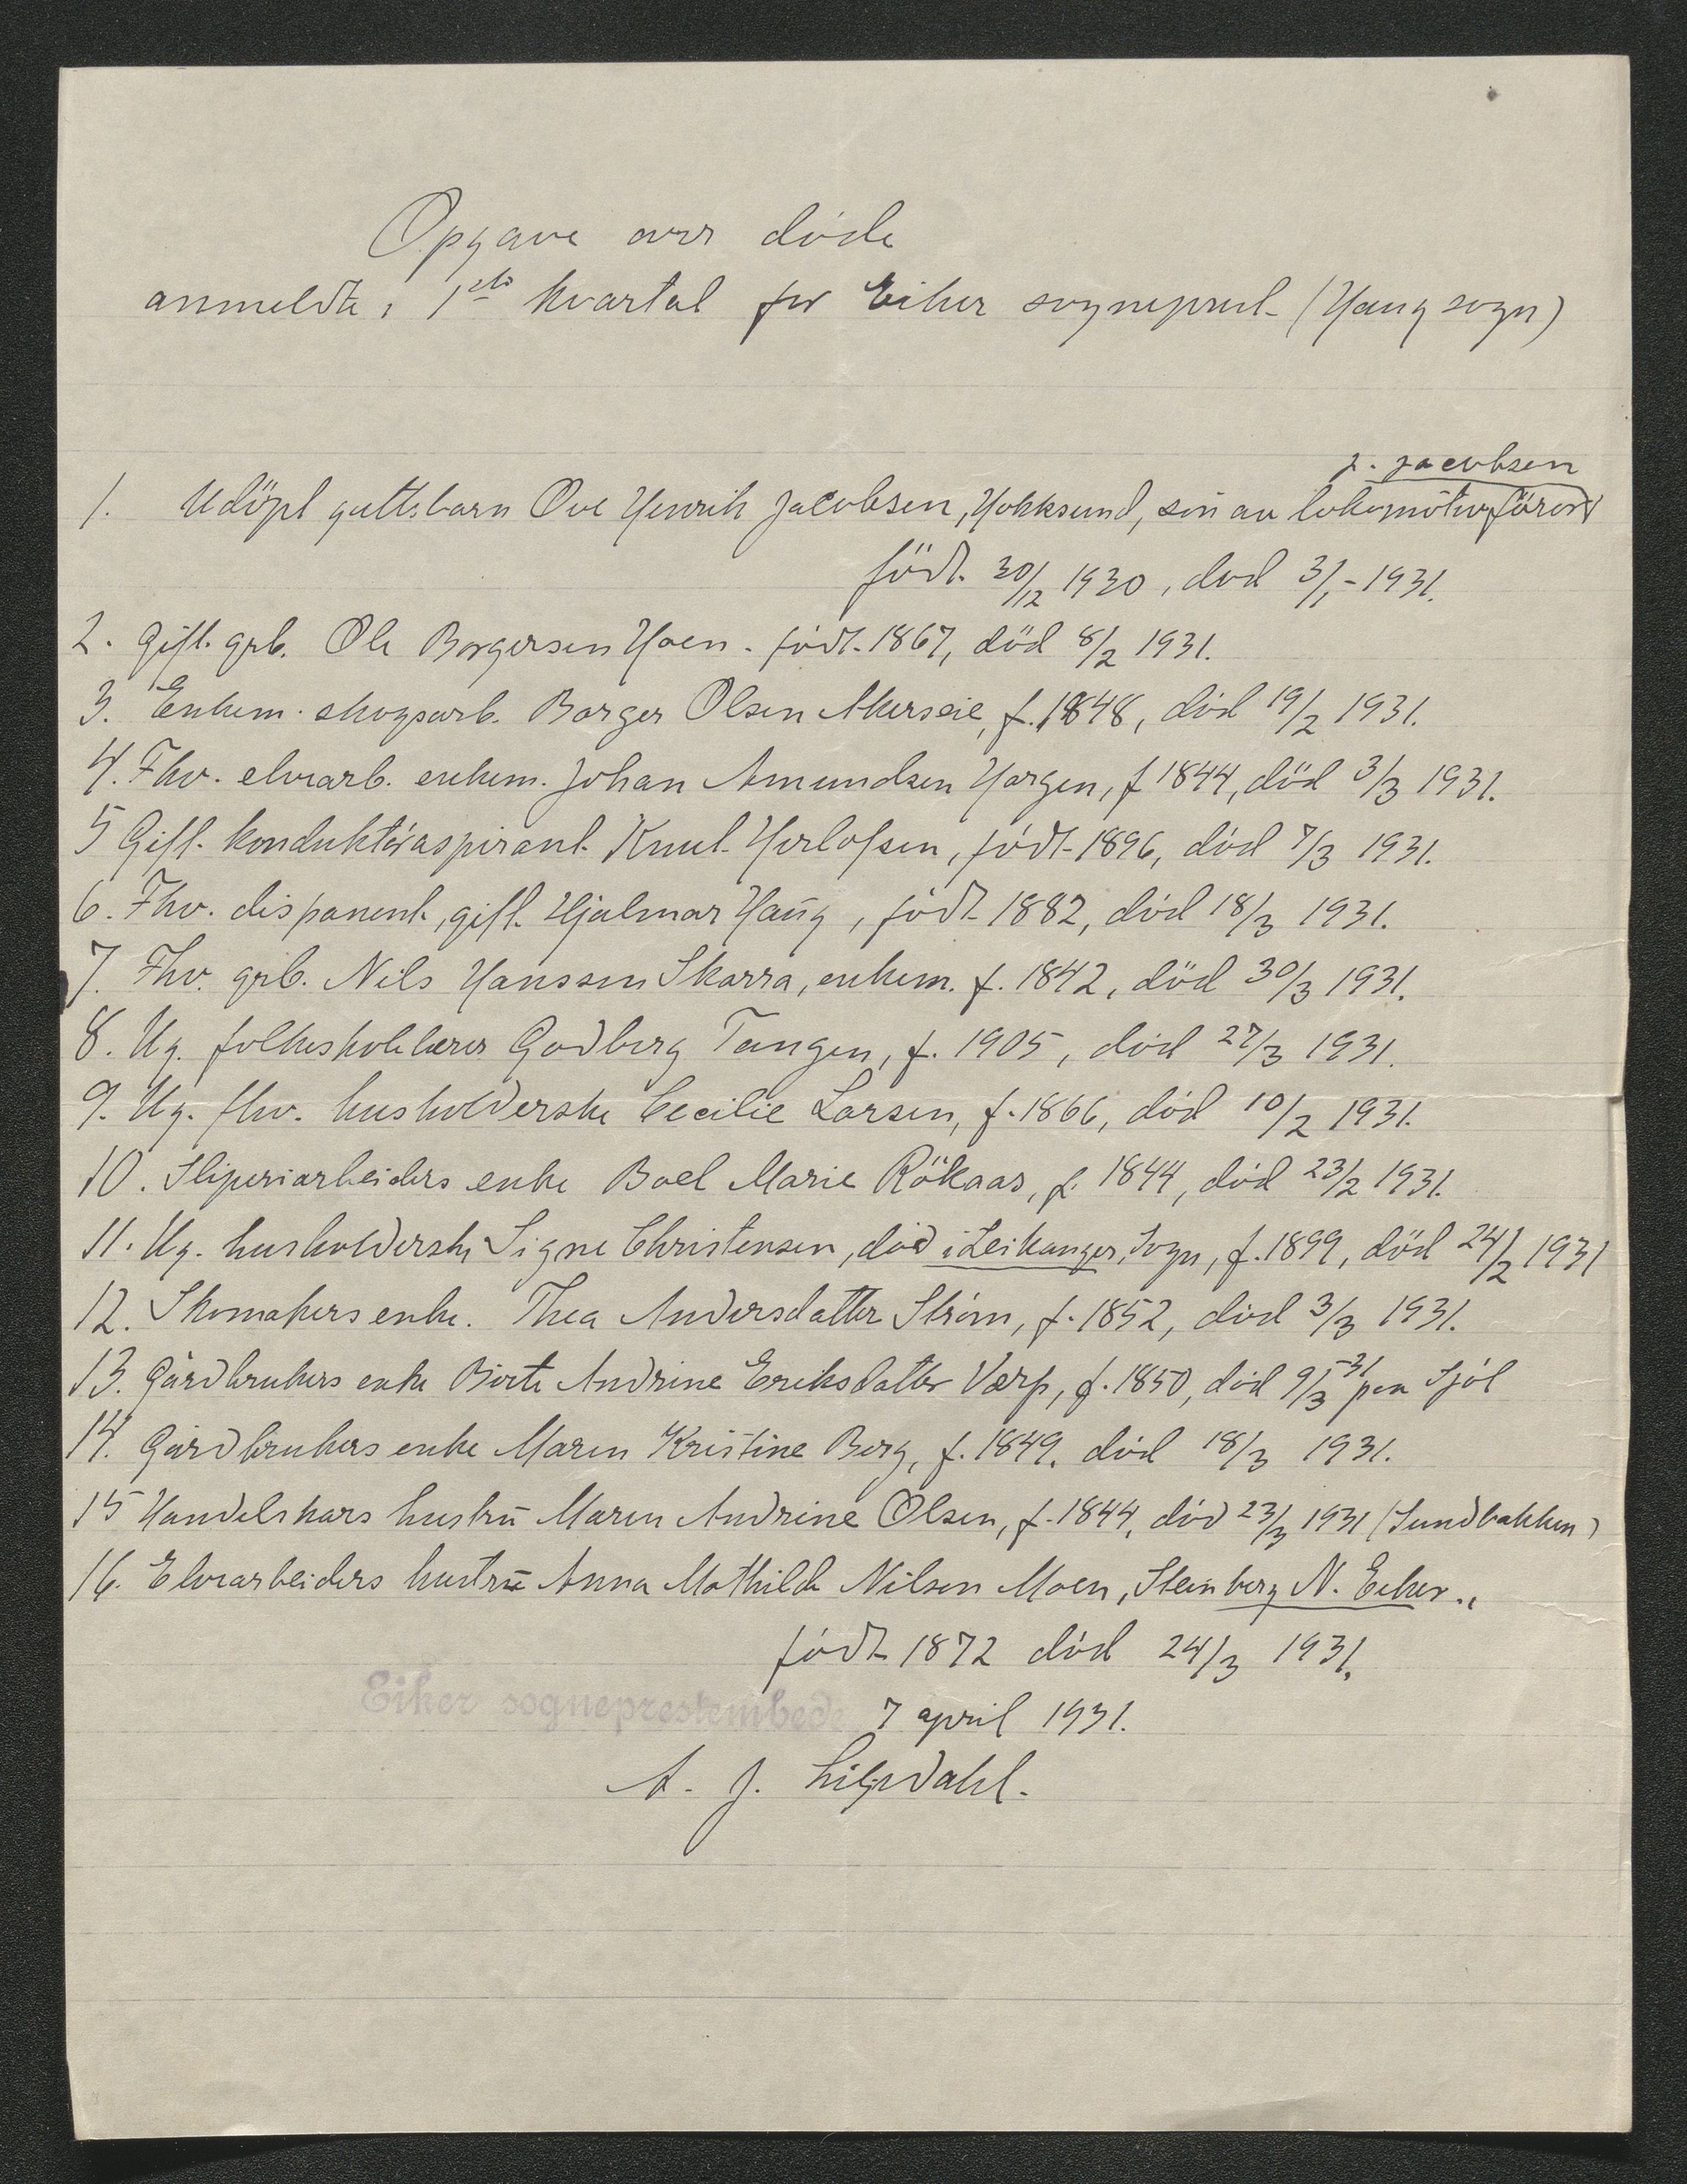 Opgave over döde
anmeldte i 1ste kvartal for Eiker sogneprest. (Haug sogn)
J. Jacobsen
1. Udöpt guttebarn Ove Henrik Jacobsen, Hokksund, sön av lokomotivförer
födt 30/12 1930, död 3/1 - 1931.
2. Gift. grb. Ole Borgersen Hoen. födt. 1867, död 8/2 1931.
3. Enkem. skogsarb. Borger Olsen Akerseie, f. 1848, död 19/2 1931.
4. Fhv. elvearb. enkem. Johan Amundsen Horgen, f 1844, död 3/3 1931.
5 Gift. konduktöraspirant. Knut Herlofsen, födt 1896, död 7/3 1931.
6. Fhv. disponent, gift. Hjalmar Haug, födt 1882, död 18/3 1931.
7. Fhv. grb. Nils Hanssen Skarra, enkem. f. 1842, död 30/3 1931.
8. Ug. folkeskolelærer Godberg Tangen, f. 1905, död 27/3 1931.
9. Ug. fhv. husholderske Cecilie Larsen, f. 1866, död 10/2 1931.
10. Sliperiarbeiders enke Boel Marie Rökaas, f. 1844, död 23/2 1931.
11. Ug. husholderske Signe Christensen, död i Leikanger, Sogn, f. 1899, död 24/2 1931
12. Skomakers enke. Thea Andersdatter Ström, f. 1852, död 3/3 1931.
13. Gårdbrukers enke Birte Andrine Eriksdatter Værp, f. 1850, död 9/3 -31 paa
14. Gårdbrukers enke Maren Kristine Berg, f. 1849, död 18/3 1931.
15 Handelskars hustru Maren Andrine Olsen, f. 1844, död 23/3 1931 (Sundbakken)
16. Elvearbeiders hustru Anna Mathilde Nilsen Moen, Steinberg N. Eiker.,
födt 1872 död 24/3 1931.
Eiker sogneprestembede 7 april 1931.
A. J. Liljedahl.